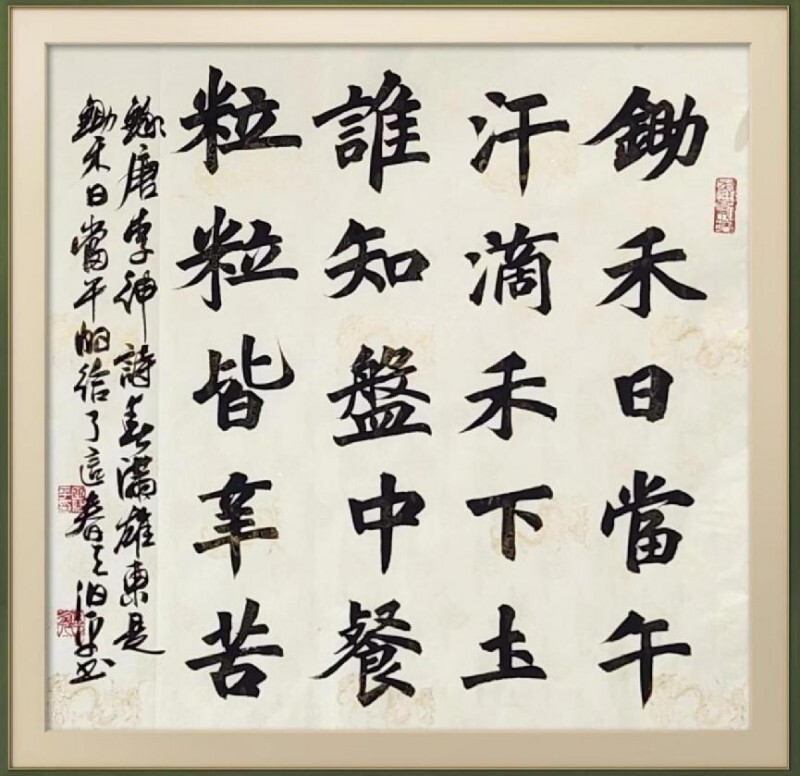 鋤禾日當午
汗滴禾下土
誰知盤中餐
粒粒皆辛苦
錄唐李紳詩春滿
鋤禾日當午 給了這春 書